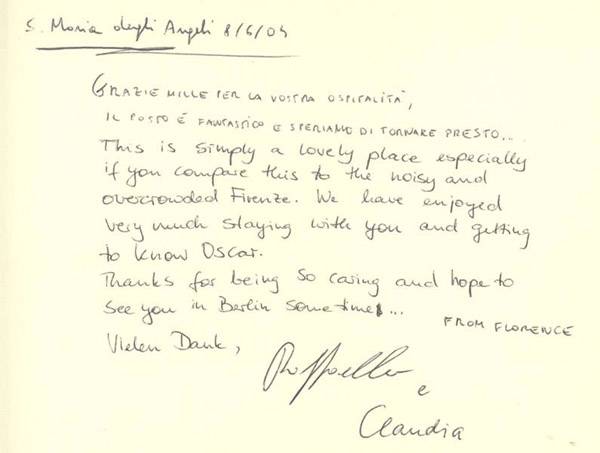 S. Maria degli Angeli 8/6/04
GRAZIE MILLE PER LA VOSTRA OSPITALITÀ,
IL POSTO È FANTASTICO E SPERIAMO DI TORNARE PRESTO...
This is simply a lovely place especially
if you compare this to the noisy and
overcrowded Firenze. We have enjoyed
very much staying with you and getting
to know Oscar.
Thanks for being so caring and hope to
see you in Berlin sometimes...
FROM FLORENCE
Vielen Dank,
Raffaella
e
Claudia